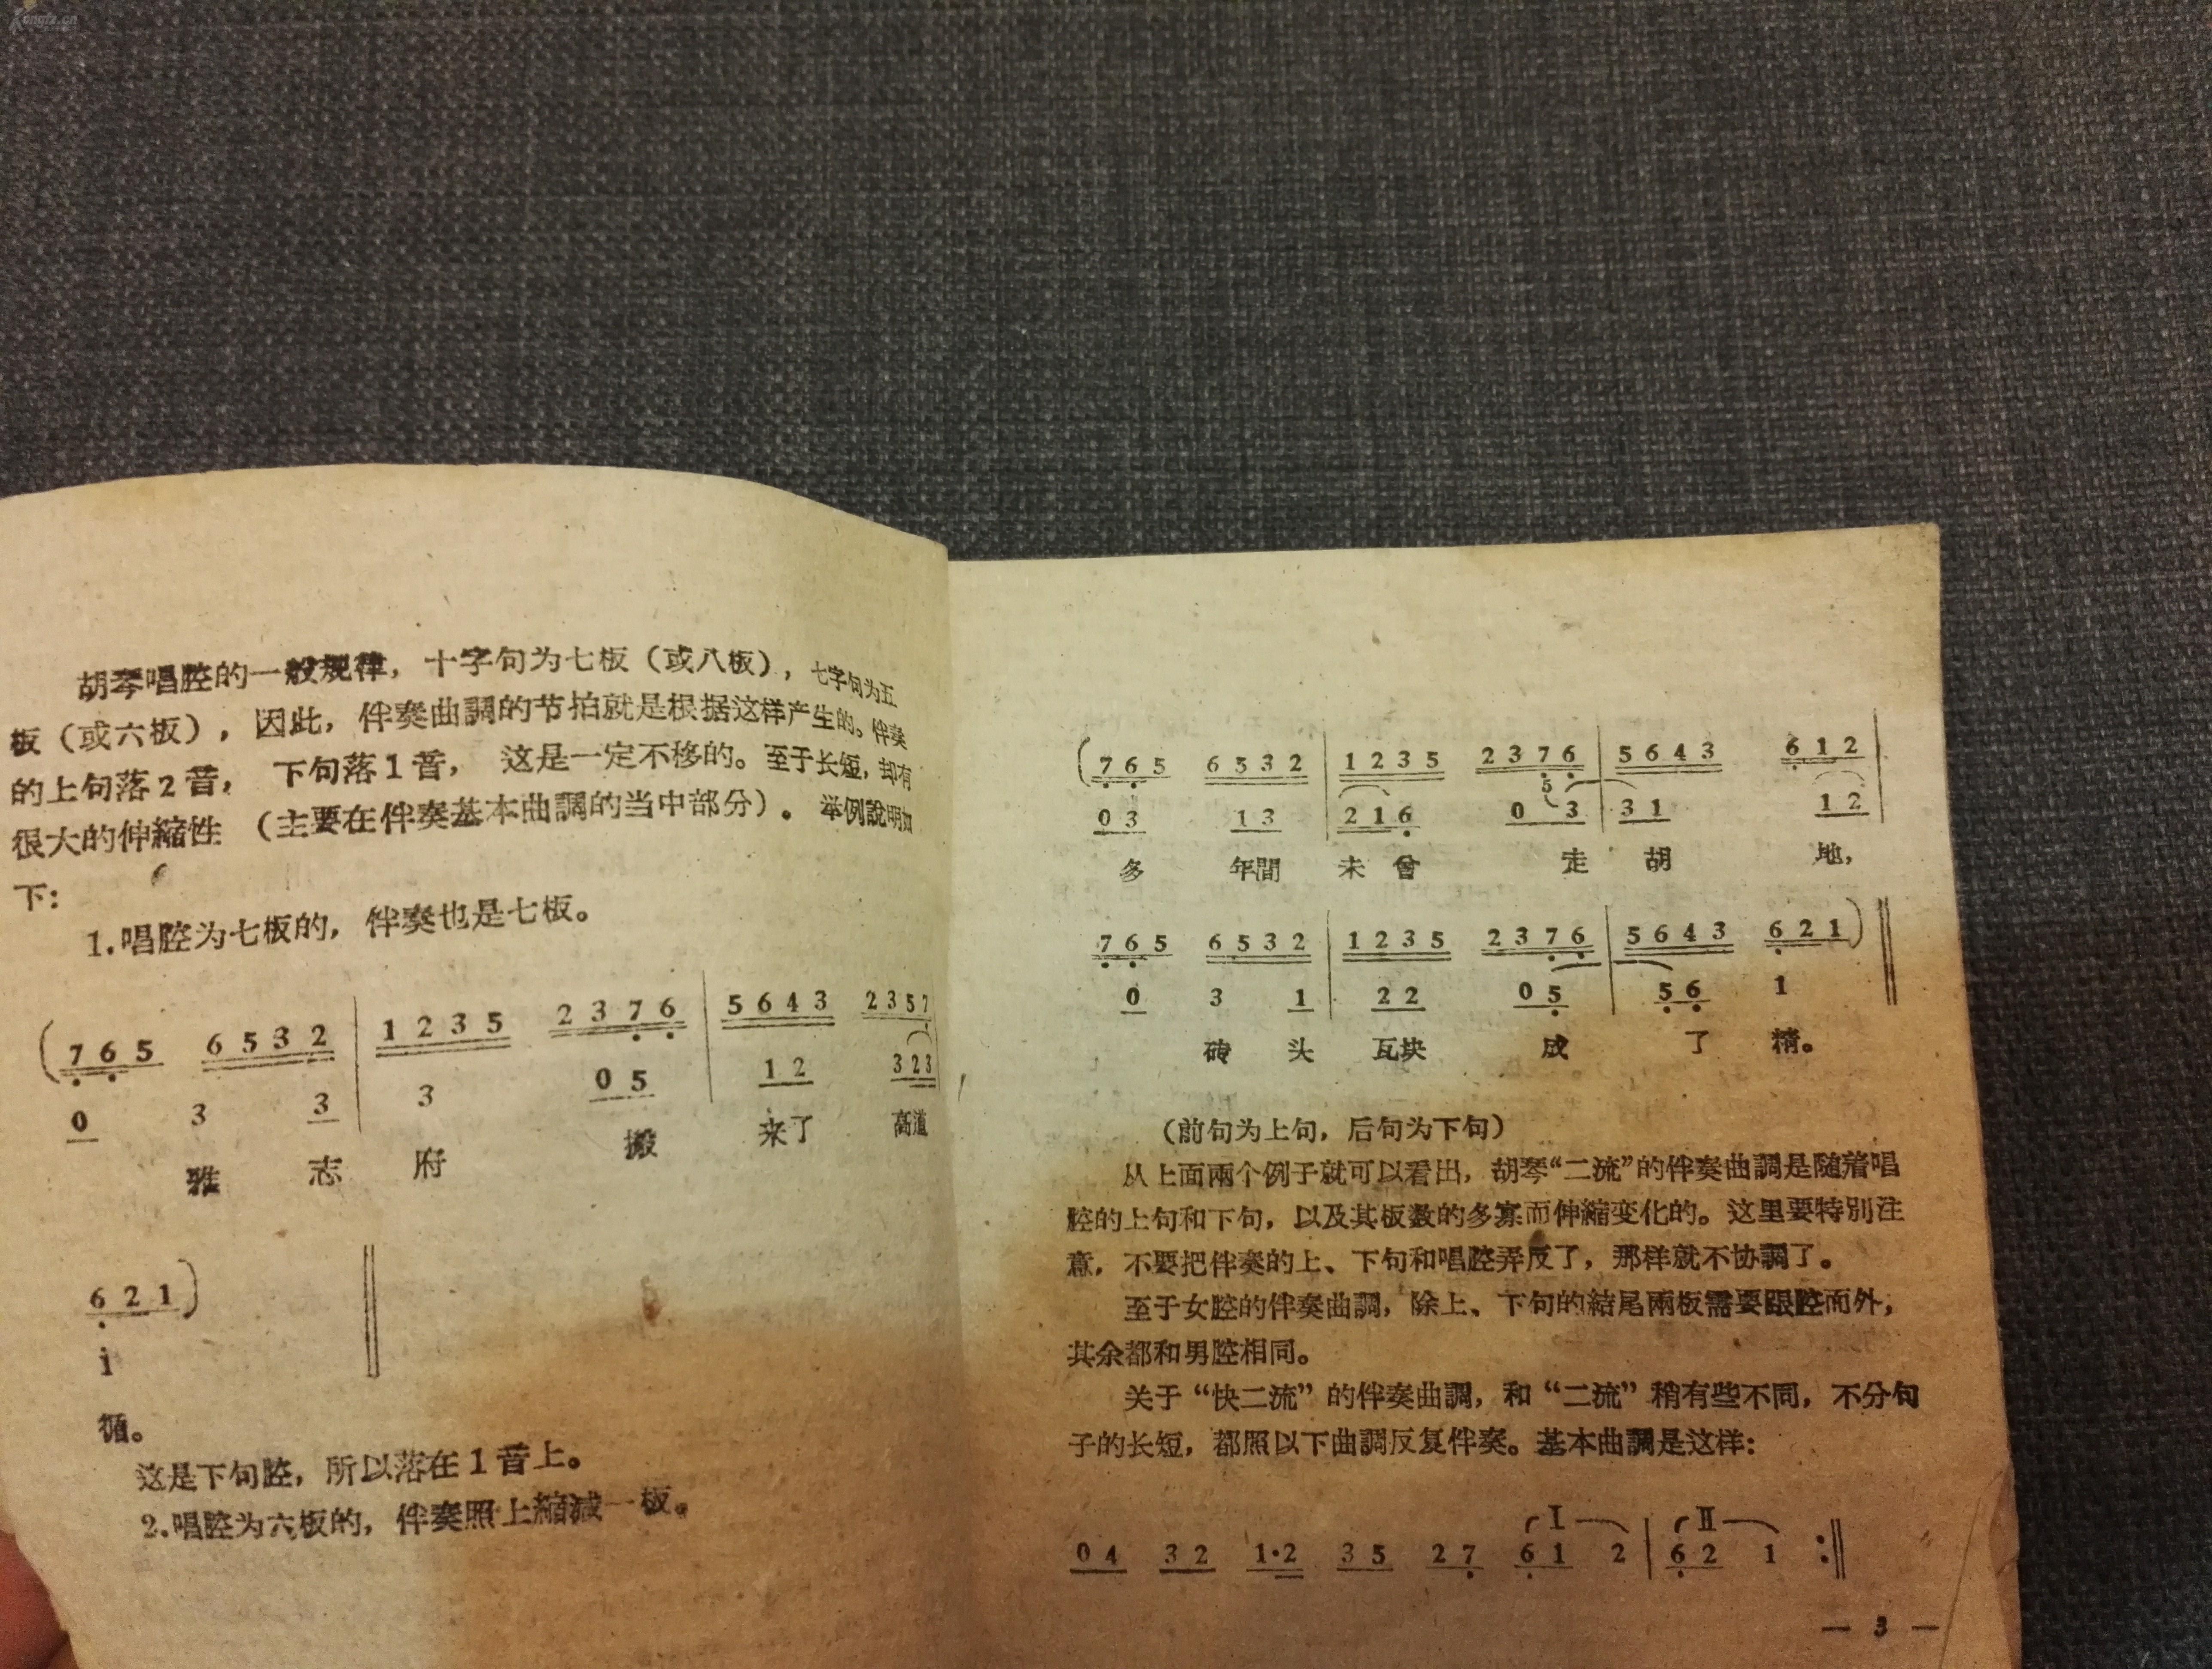 Kongfz.cn
胡琴唱腔的一般规律，十字句为七板（或八板），七字句为五
板（或六板），因此，伴奏曲調的节拍就是根据这样产生的。伴奏
的上句落2音，下句落1音，这是一定不移的。至于长短，却有
很大的伸縮性（主要在伴奏基本曲調的当中部分）。举例說明如
下：
1.唱腔为七板的，伴奏也是七板。
(7 6 5 6 5 3 2 | 1 2 3 5 2 3 7 6 | 5 6 4 3 2 3 5 7
0 3 3 | 3 0 5 | 1 2 3 2 3
雅 志 府 搬 来了 高道
6 2 1)
1
循。
这是下句腔，所以落在1音上。
2.唱腔为六板的，伴奏照上縮减一板。
(7 6 5 6 5 3 2 | 1 2 3 5 2 3 7 6 | 5 6 4 3 6 1 2 |
0 3 1 3 | 2 1 6 0 5 3 | 3 1 1 2
多 年間 未 曾 走 胡 地，
7 6 5 6 5 3 2 | 1 2 3 5 2 3 7 6 | 5 6 4 3 6 2 1)
0 3 1 | 2 2 0 5 | 5 6 1
砖 头 瓦块 成 了 精。
（前句为上句，后句为下句）
从上面兩个例子就可以看出，胡琴“二流”的伴奏曲調是随着唱
腔的上句和下句，以及其板数的多寡而伸縮变化的。这里要特別注
意，不要把伴奏的上、下句和唱腔弄反了，那样就不协調了。
至于女腔的伴奏曲調，除上、下句的結尾兩板需要跟腔而外，
其余都和男腔相同。
关于“快二流”的伴奏曲調，和“二流”稍有些不同，不分句
子的长短，都照以下曲調反复伴奏。基本曲調是这样：
I II
0 4 3 2 1·2 3 5 2 7 6 1 2 | 6 2 1 :||
— 3 —